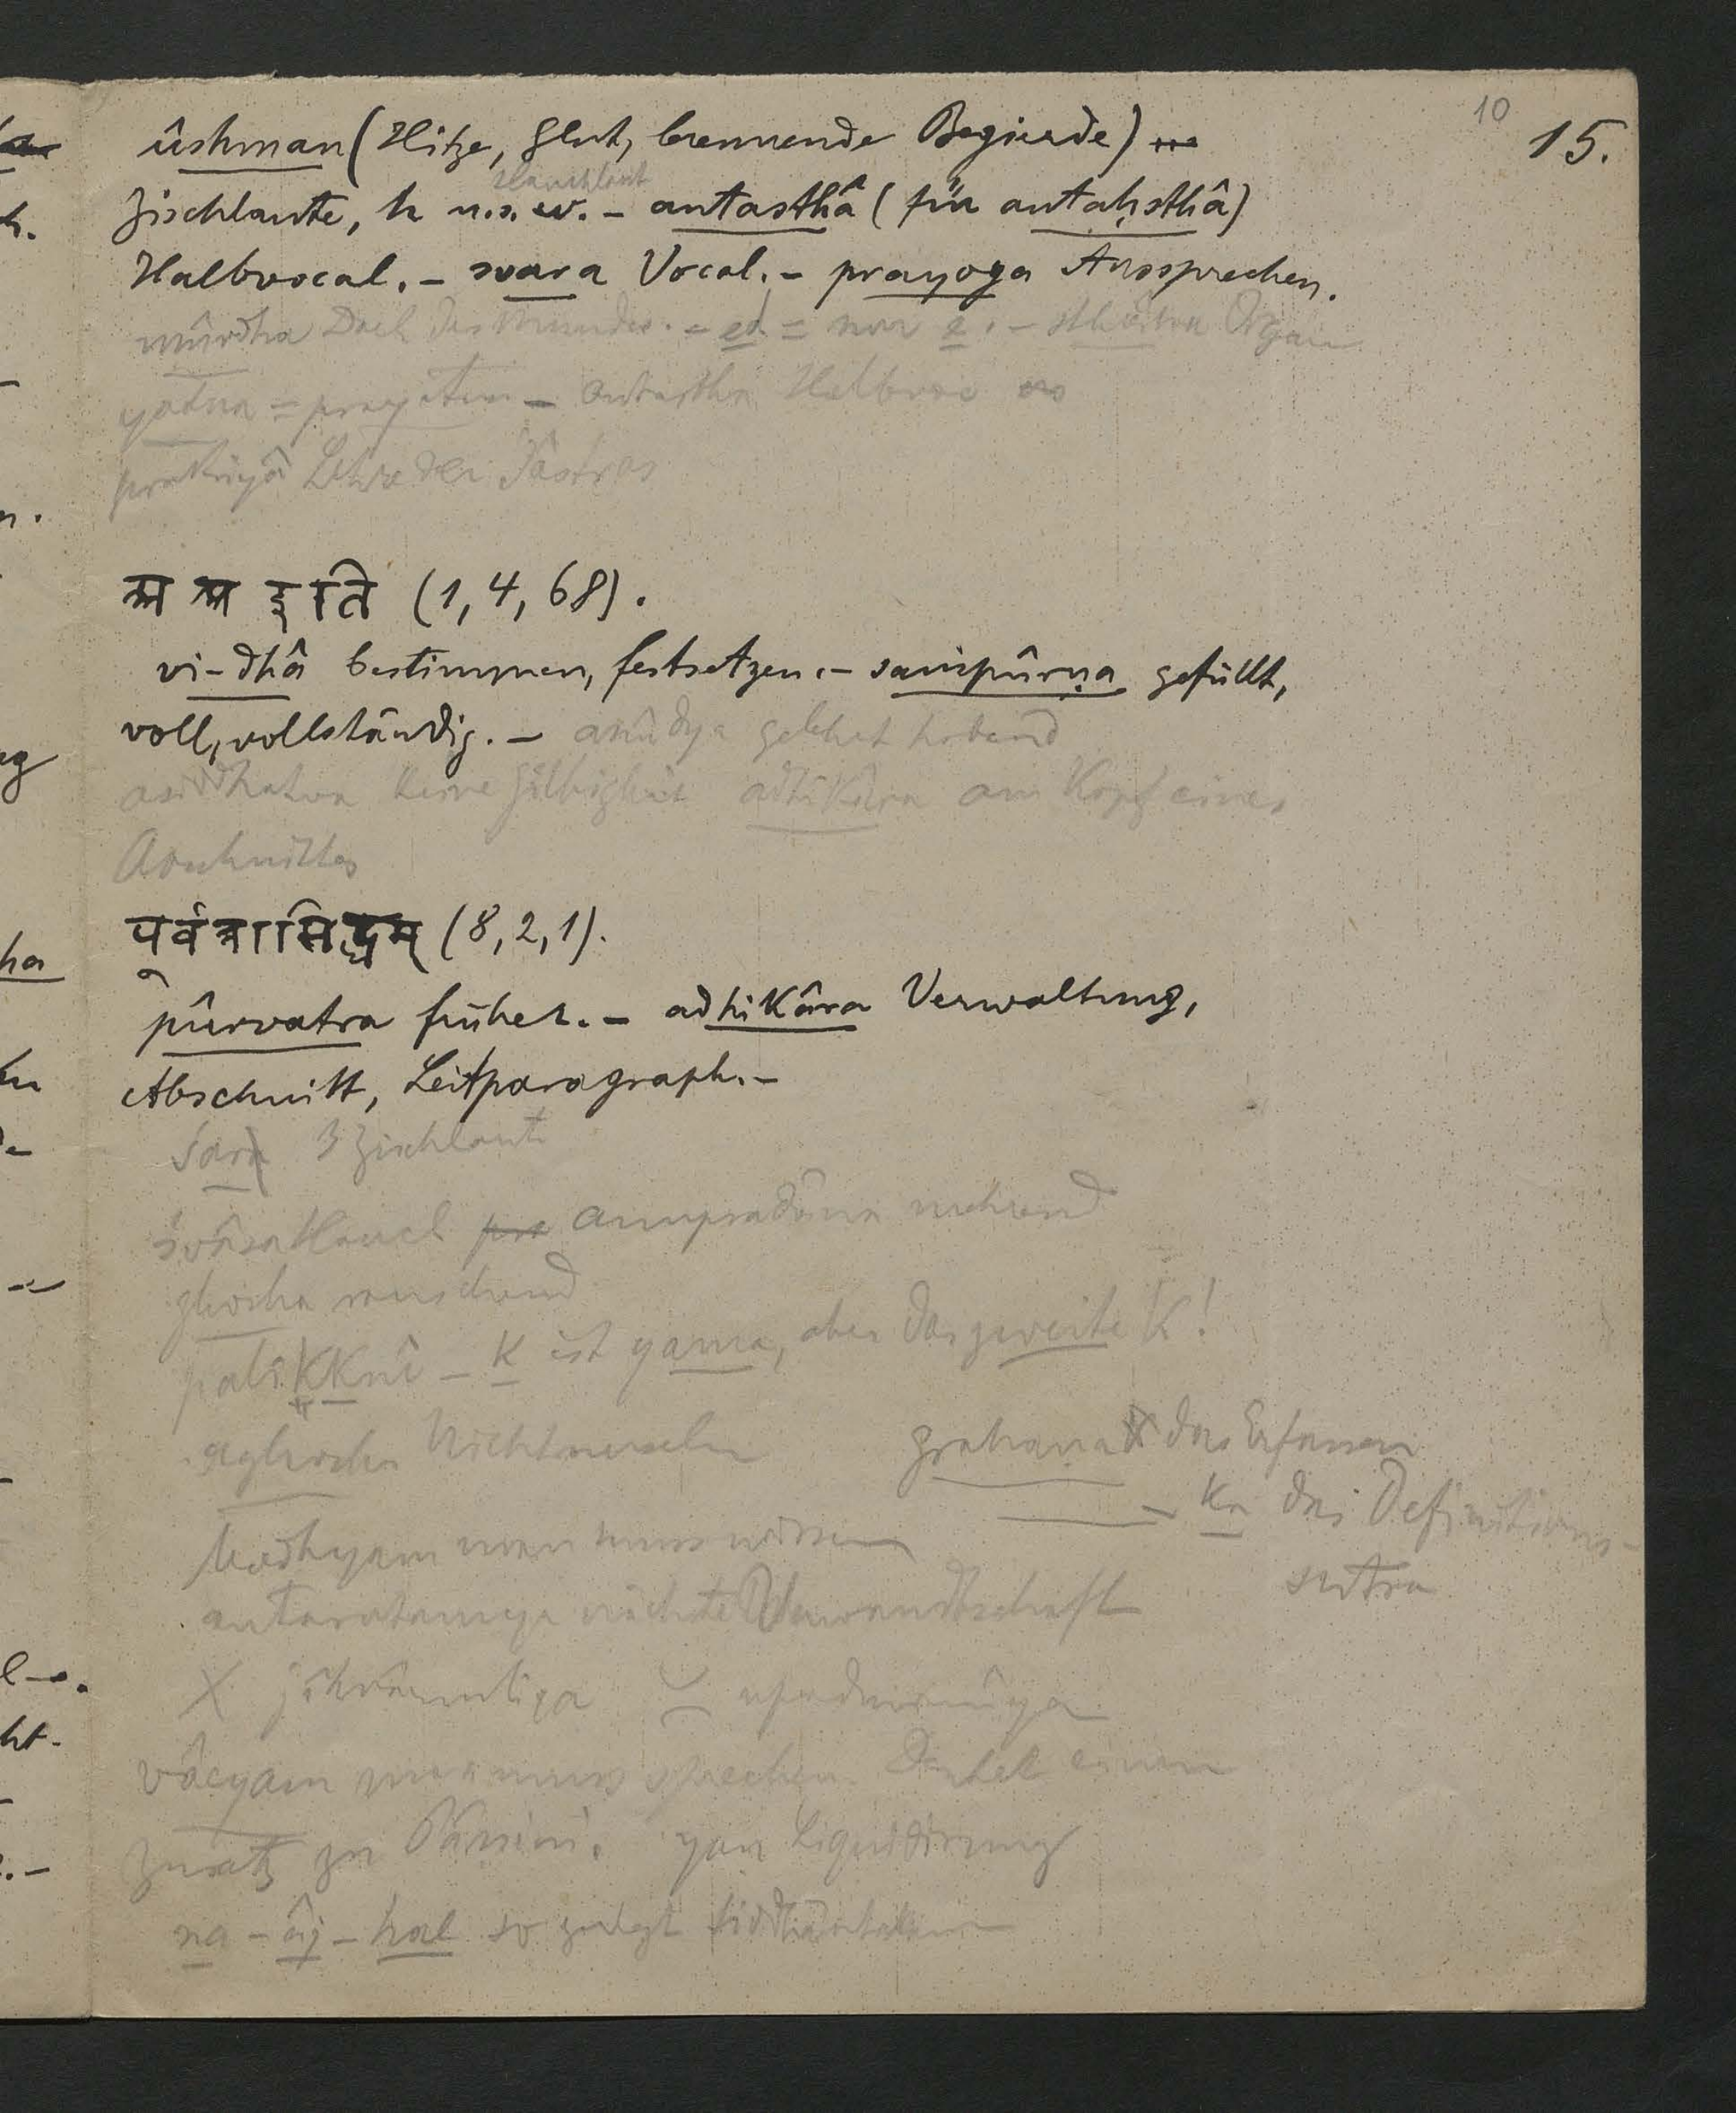 10
15.
ûshman (Hitze, Glut, brennende Begierde)
Hauchlaut
Zischlaute, h u.s.w. – antasthâ (für antaḥsthâ)
Halbvocal. – svara Vocal. – prayoga Aussprechen.
mûrdha Dach des Mundes. – et = nur e. – sthâna Organ
yatna = prayatna – antastha Halbvoc
prakriyâ Lehre der Śâstras
अ अ इति (1, 4, 68).
vi-dhâ bestimmen, festsetzen. – saṃpûrṇa gefüllt,
voll, vollständig. – anûdya gelehrt habend
asiddhatva keine Gültigkeit adhikâra am Kopf eines
Abschnittes
पूर्वत्रासिद्धम् (8, 2, 1).
pûrvatra früher. – adhikâra Verwaltung,
Abschnitt, Leitparagraph. –
śar 3 Zischlaute
śvâsa Hauch anupradâna
ghosha rauschend
palikknî – k ist yama, aber das zweite k!
aghosha
grahaṇa das Erfassen
– ka das Definitions-
sutra
bodhyam man muss wissen
antaratamya nächste Verwandtschaft
X jihvâmûlîya ≍ upadhmânîya
vâcyam man muss sprechen. Enthält einen
Zusatz zu Pâṇini. yaṇ Liquidirung
na – âj – hal so zerlegt